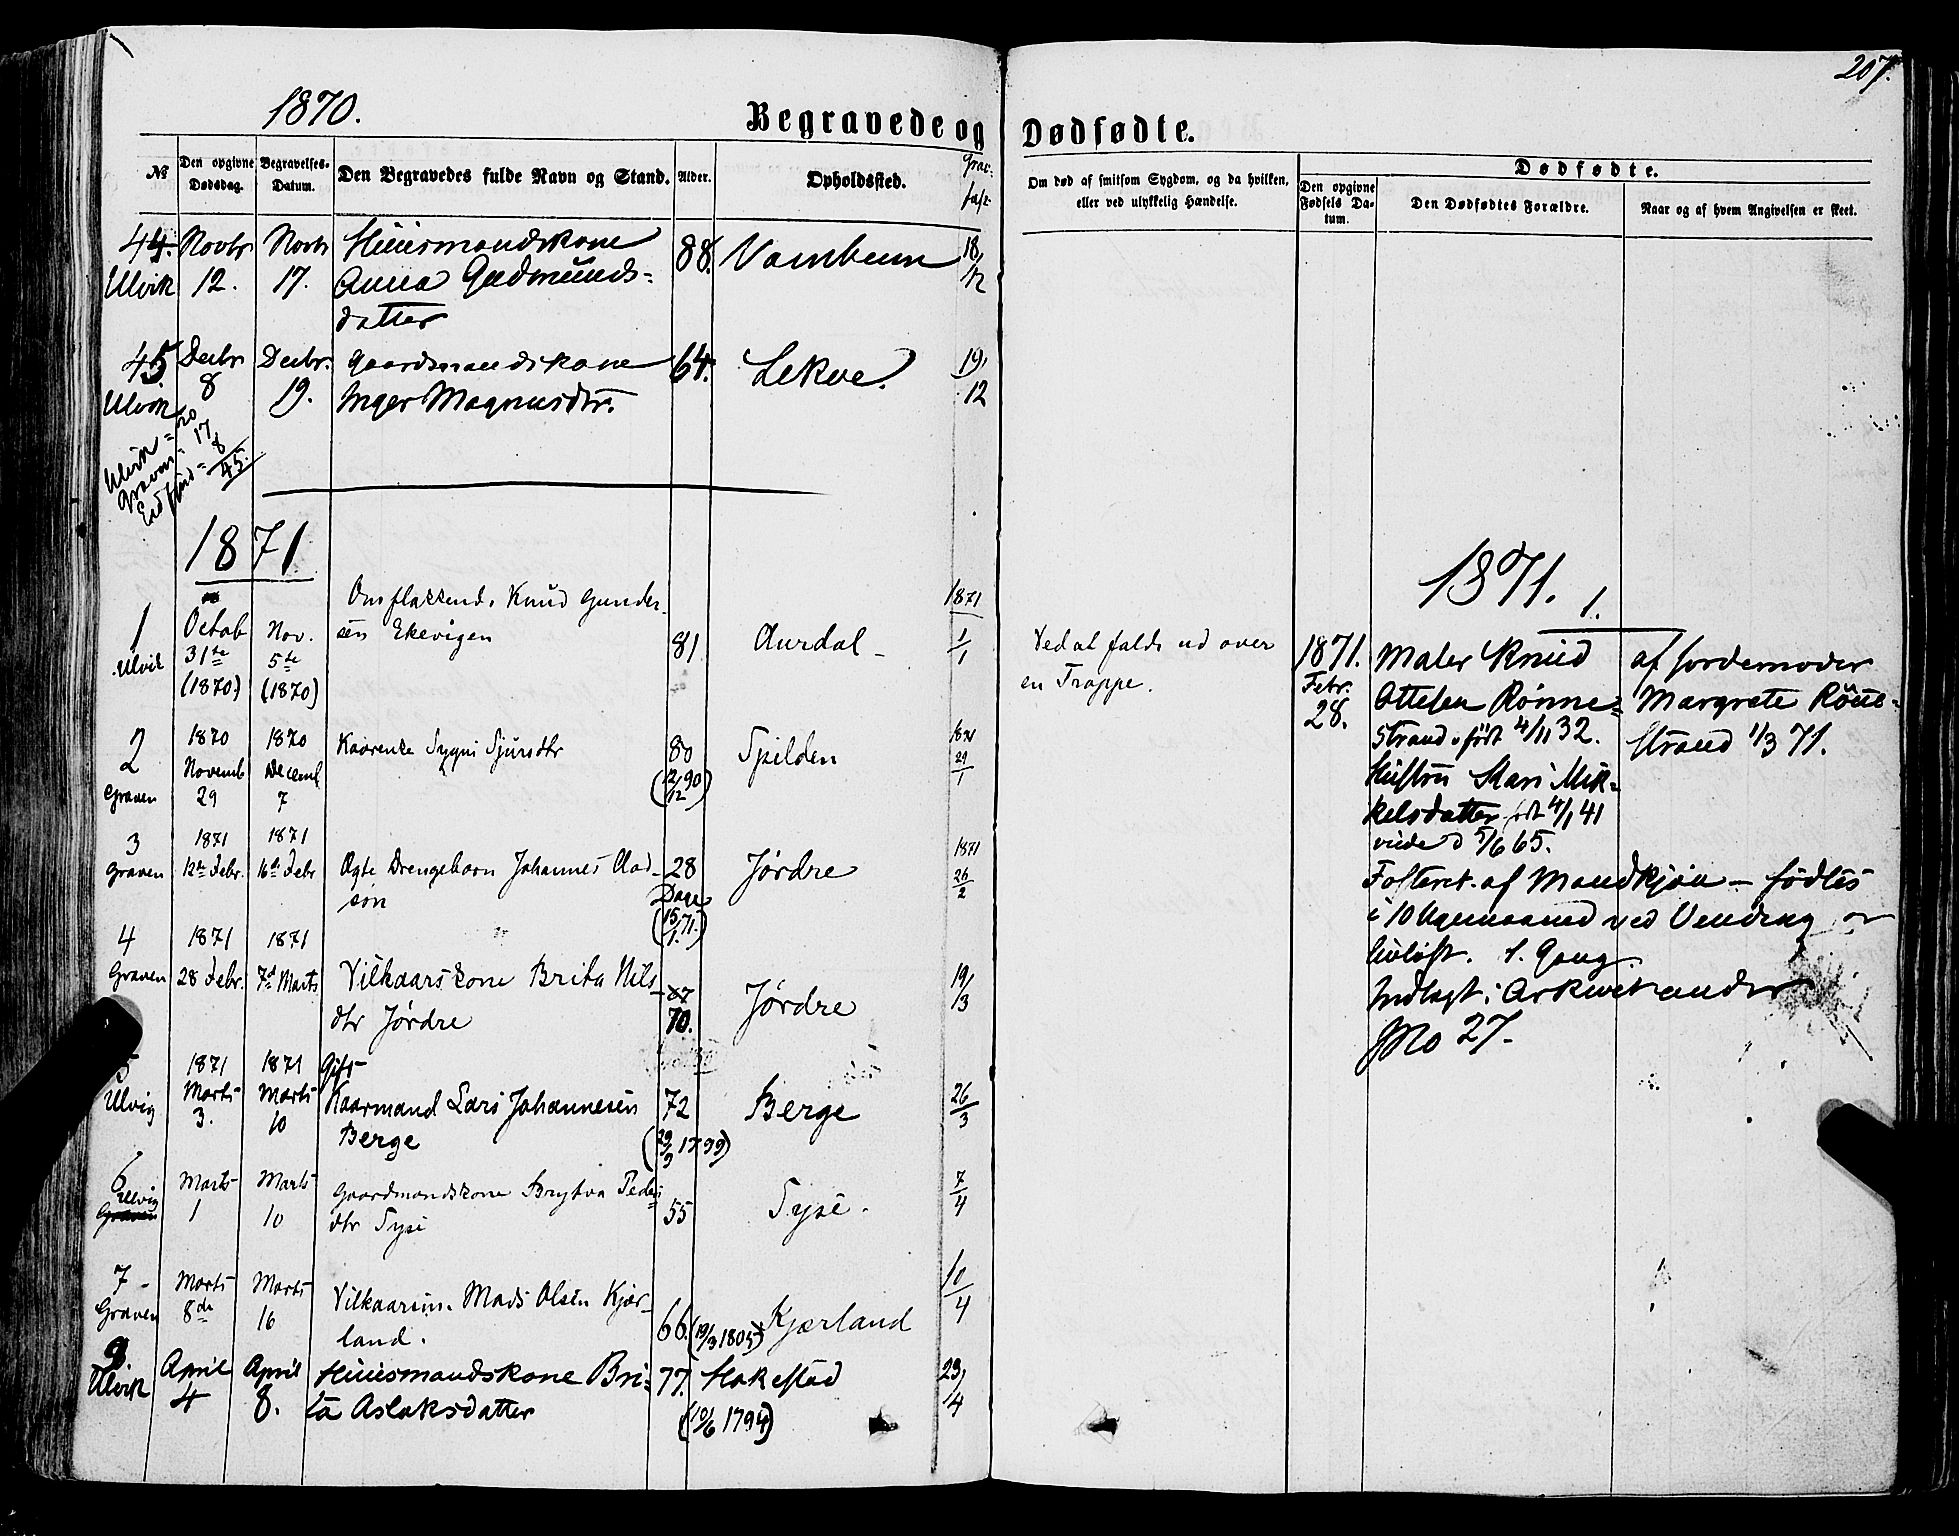 207.
1870.
Begravede og Dødfødte.
№
Den opgivne Dødsdag.
Begravelses-Datum.
Den Begravedes fulde Navn og Stand.
Alder.
Opholdssted.
Om død af smitsom Sygdom, og da hvilken,
eller ved ulykkelig Hændelse.
Dødfødte.
Den opgivne Fødsels Datum.
Den Dødfødtes Forældre.
Naar og af hvem Angivelsen er skeet.
44. Novbr Novbr Huusmandskone 88. Vambeim 18/12
Ulvik 12. 17. Anna Gudmunds-
datter
45. Decbr Decbr. Gaardmandskone 64. Lekve. 19/12
Ulvik 8 19. Inger Magnusdtr.
Ulvik = 20
Graven = 17
Eidfjord = 8
45.
1871
1871
1 Octob Nov. Knud Gunder-
Ulvik 31te 5te sen Ekevigen 81 Aurdal 1/1
(1870) (1870)
Ved at falde ud over
en Trappe.
2 1870 1870 Sygni Sjursdtr 80 Spilden 1871
Graven Novemb 29 Decemb 7 29/1
3 1871 1871
Graven 12te Febr. 16de Febr Ægte Drengebarn Johannes Olad- 28 Dage Jørdre 1871 26/2
søn (15/1. 71.)
4 1871 1871
Graven 28 Febr. 7de Marts Vilkaarskone Brita Nils- 87 70. Jørdre 19/3
dtr Jørdre
5 1871 1871 Gift
Ulvig Marts 3. Marts 10 Kaarmand Lars Johannesen 72 Berge 26/3
Berge (29/9 1799)
6 Ulvig Graven Marts 1 Marts 10 Gaardmandskone Brytva Peders- 55 Syse. 7/4
dtr Syse
7 Graven Marts 8de Marts 16 Vilkaarsm. Mads Olsen Kjær- 66. (19/9 1805) Kjærland 10/4
land.
8. Ulvik April 4 April 8. Huusmandskone Bri- 77. Hakestad 23/4
ta Aslaksdatter (10/6 1794)
1871. 1.
1871. Febr. 28.
Maler Knud
Ottesen Rønne-
strand, født 4/11 32.
Hustru Kari Mik-
kelsdatter født 4/1 41
viede d 5/6 65.
Fosteret af Mandkjøn - fødtes
i 10 Maaned ved Vending og
livløst. 1. Gang.
Indlagt i Arkivet under
No 27.
af Jordemoder
Margrete Rønne-
strand 1/3 71.